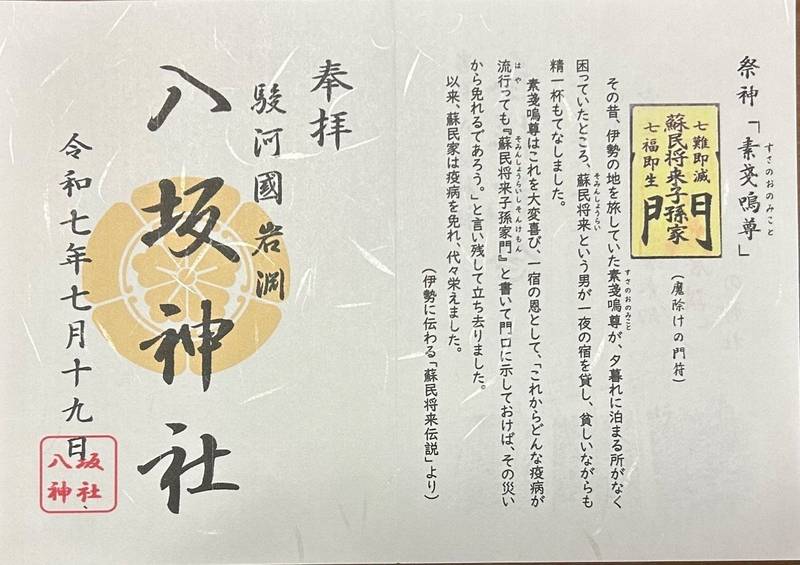 祭神「素戔嗚尊」
すさのおのみこと
七難即滅
蘇民将来子孫家
七福即生
門
(魔除けの門符)
その昔、伊勢の地を旅していた素戔嗚尊が、夕暮れに泊まる所がなく
すさのおのみこと
困っていたところ、蘇民将来という男が一夜の宿を貸し、貧しいながらも
そみんしょうらい
精一杯もてなしました。
素戔嗚尊はこれを大変喜び、一宿の恩として、「これからどんな疫病が
流行っても『蘇民将来子孫家門』と書いて門口に示しておけば、その災い
はや
そみんしょうらいしそんけもん
から免れるであろう。」と言い残して立ち去りました。
以来、蘇民家は疫病を免れ、代々栄えました。
(伊勢に伝わる「蘇民将来伝説」より)
奉拝
駿河國岩淵
八坂神社
令和七年七月十九日
八坂
神社